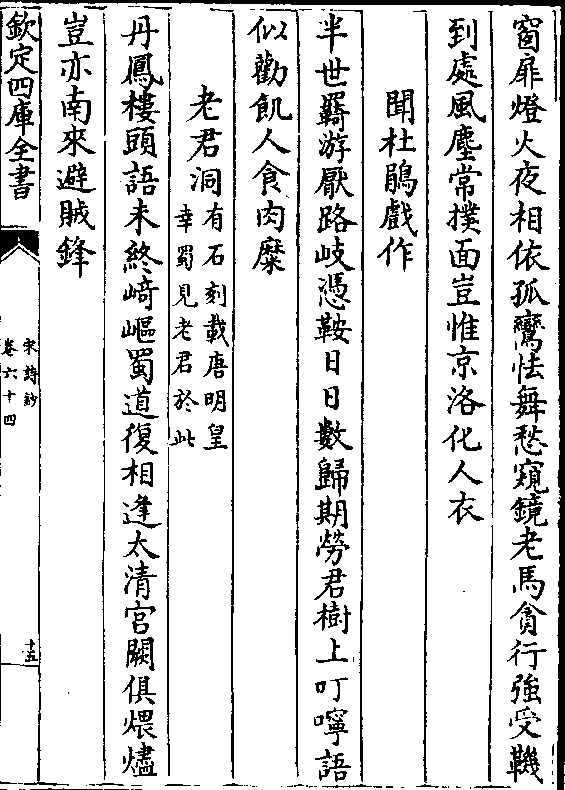 窗扉燈火夜相依孤鸞怯舞愁窺鏡老馬貪行強受鞿
到處風塵常撲面豈惟京洛化人衣
聞杜鵑戲作
半世羇游厭路岐憑鞍日日數歸期勞君樹上叮嚀語
似勸飢人食肉糜
老君洞有石刻載唐明皇
幸蜀見老君於此
丹鳳樓頭語未終崎嶇蜀道復相逢太清宮闕俱煨燼
豈亦南來避賊鋒
欽定四庫全書
宋詩鈔
卷六十四
十五